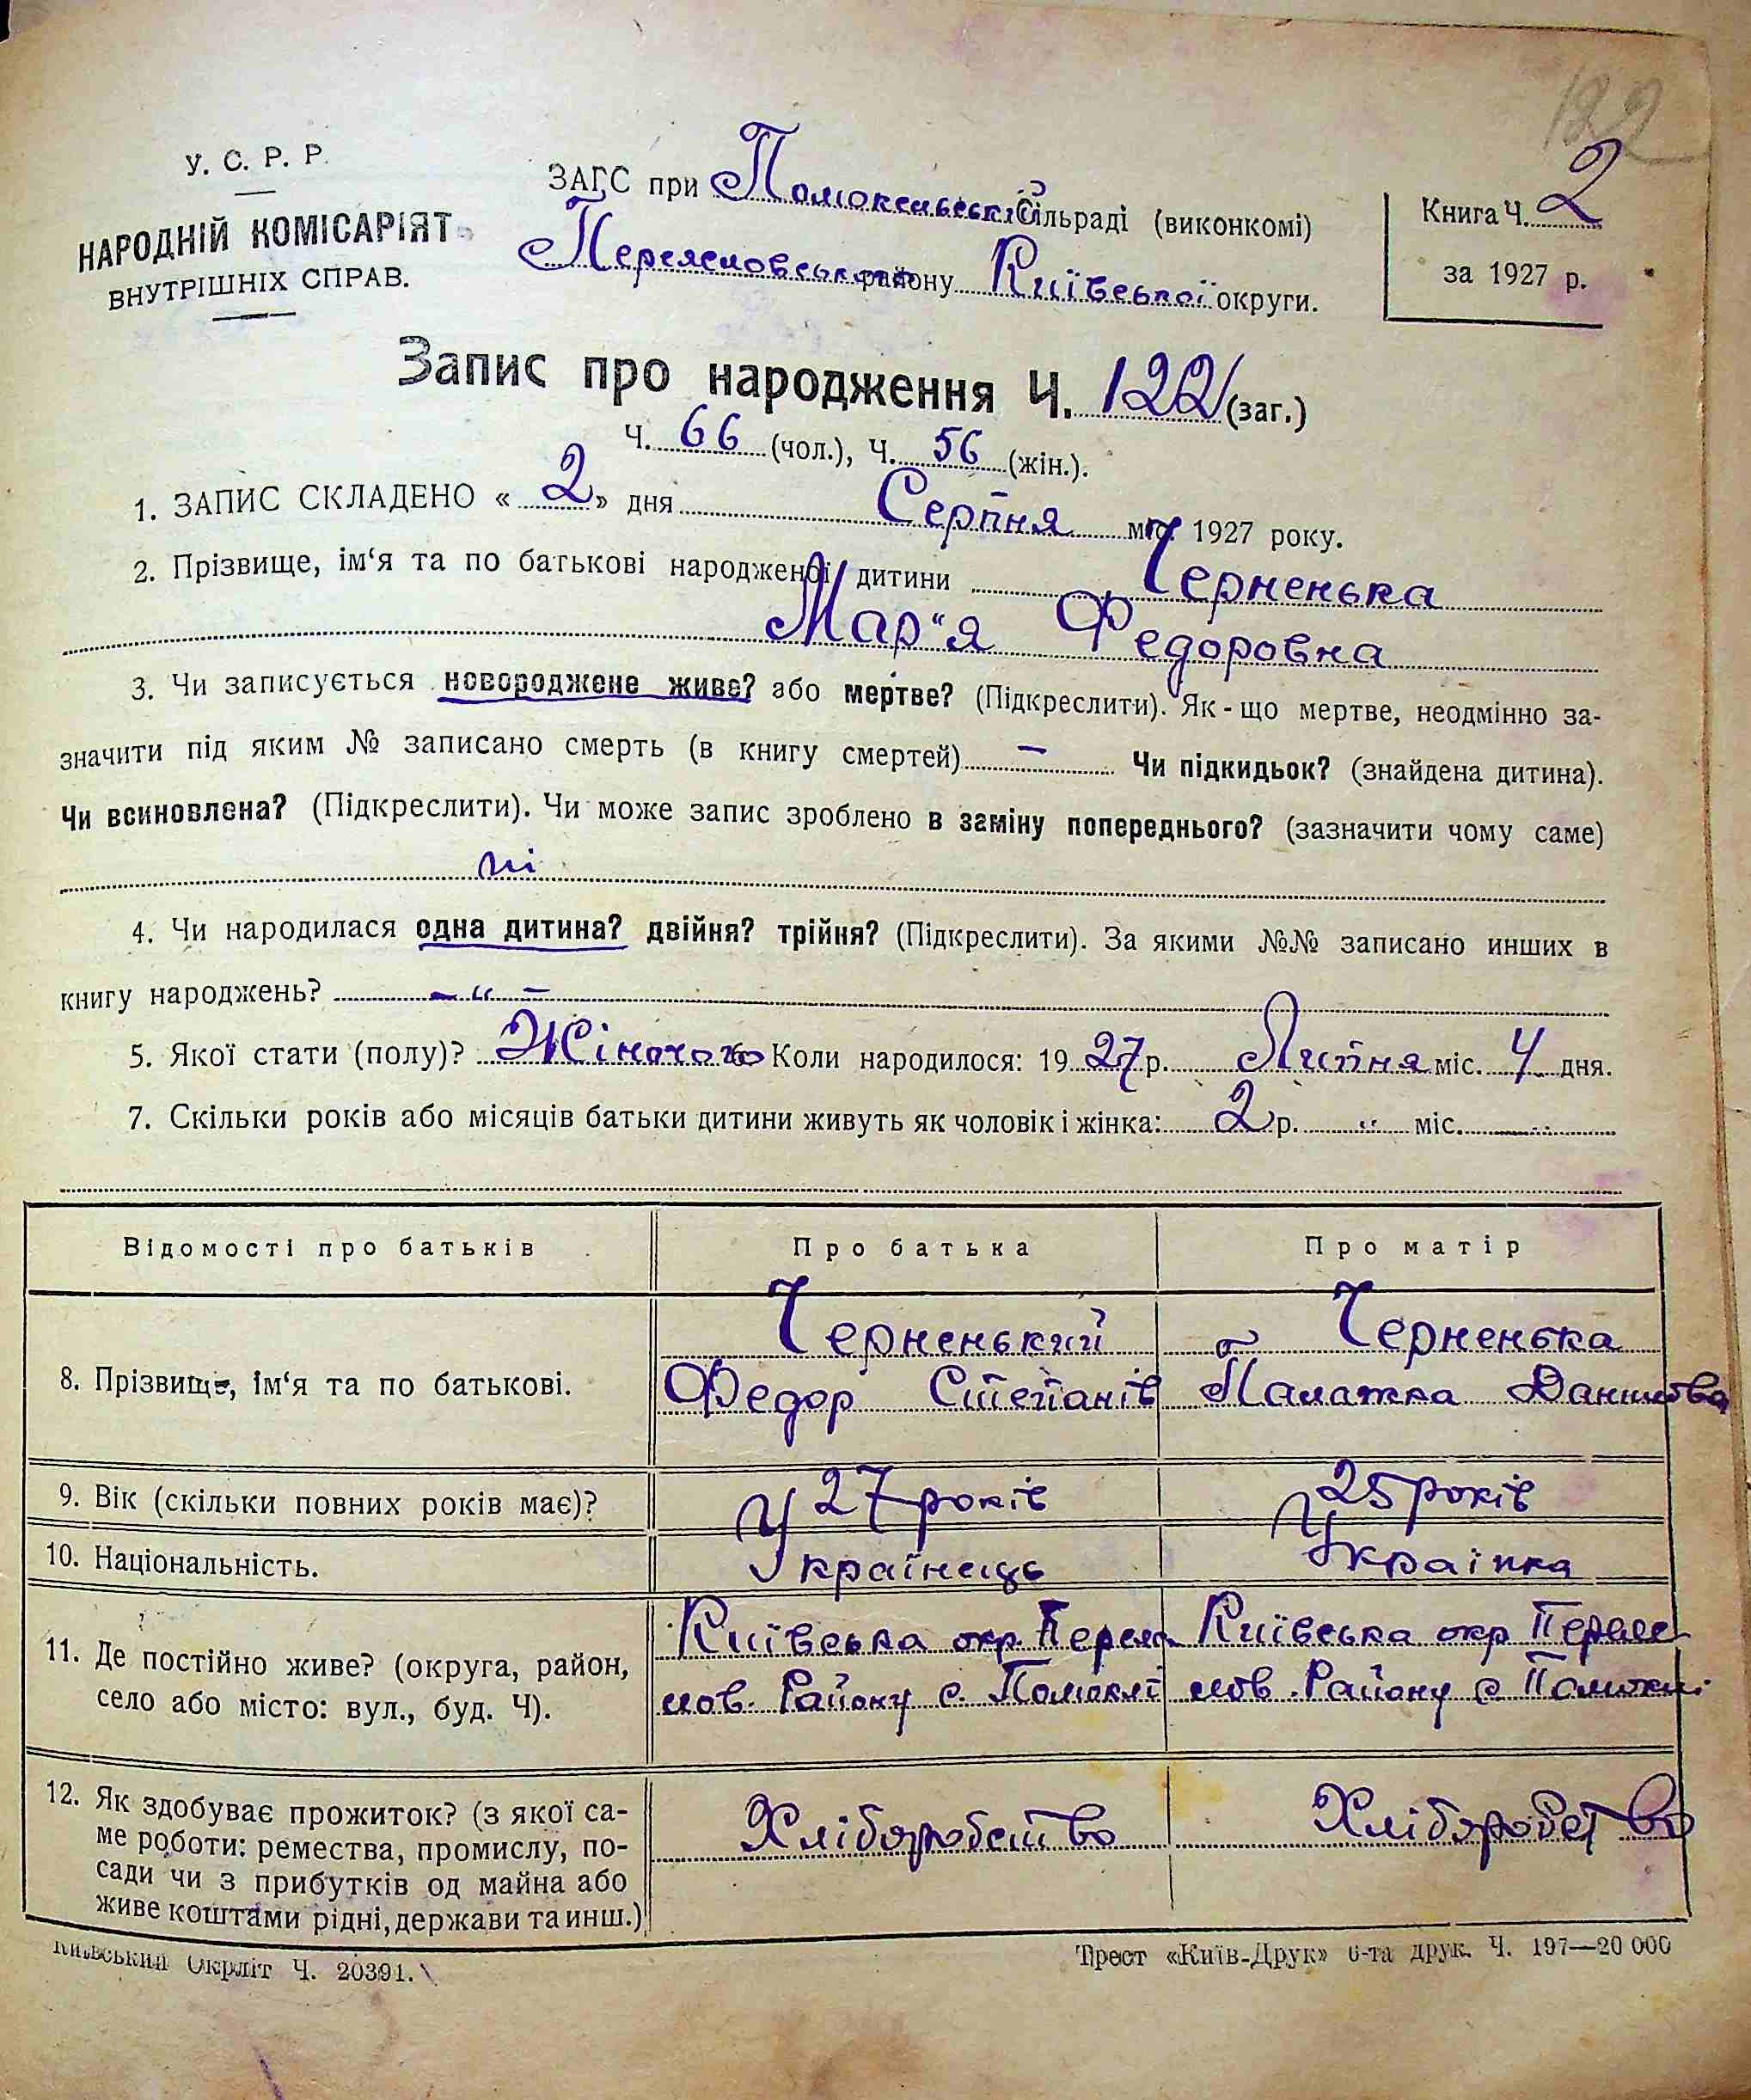 122
У. С. Р. Р.
НАРОДНІЙ КОМІСАРІЯТ
ВНУТРІШНІХ СПРАВ.
ЗАГС при Помоксльській сільраді (виконкомі)
Переяславськ району Київської округи.
Книга Ч. 2
за 1927 р.
Запис про народження Ч. 122 (заг.)
Ч. 66 (чол.), Ч. 56 (жін.).
1. ЗАПИС СКЛАДЕНО « 2 » дня Серпня міс. 1927 року.
2. Прізвище, ім‘я та по батькові народженої дитини Черненька
Мар“я Федоровна
3. Чи записується новороджене живе? або мертве? (Підкреслити). Як-що мертве, неодмінно за-
значити під яким № записано смерть (в книгу смертей) — Чи підкидьок? (знайдена дитина).
Чи всиновлена? (Підкреслити). Чи може запис зроблено в заміну попереднього? (зазначити чому саме)
ні
4. Чи народилася одна дитина? двійня? трійня? (Підкреслити). За якими №№ записано инших в
книгу народжень? – “ –
5. Якої стати (полу)? Жіночого Коли народилося: 19 27 р. Липня міс. 4 дня.
7. Скільки років або місяців батьки дитини живуть як чоловік і жінка: 2 р. „ міс.
Відомості про батьків Про батька Про матір
8. Прізвище, ім‘я та по батькові.
Черненький
Федор Степанів
Черненька
Палажка Данилова
9. Вік (скільки повних років має)? 27 років 25 років
10. Національність. Українець Українка
11. Де постійно живе? (округа, район,
село або місто: вул., буд. Ч).
Київська окр. Переяс
лов. Району с. Помоклі
Київська окр Переяс
лов. Району с Помоклі
12. Як здобуває прожиток? (з якої са-
ме роботи: ремества, промислу, по-
сади чи з прибутків од майна або
живе коштами рідні, держави та инш.)
Хліборобство
Хліборобство
Київський Окрліт Ч. 20391.
Трест «Київ-Друк» 6-та друк. Ч. 197—20 000